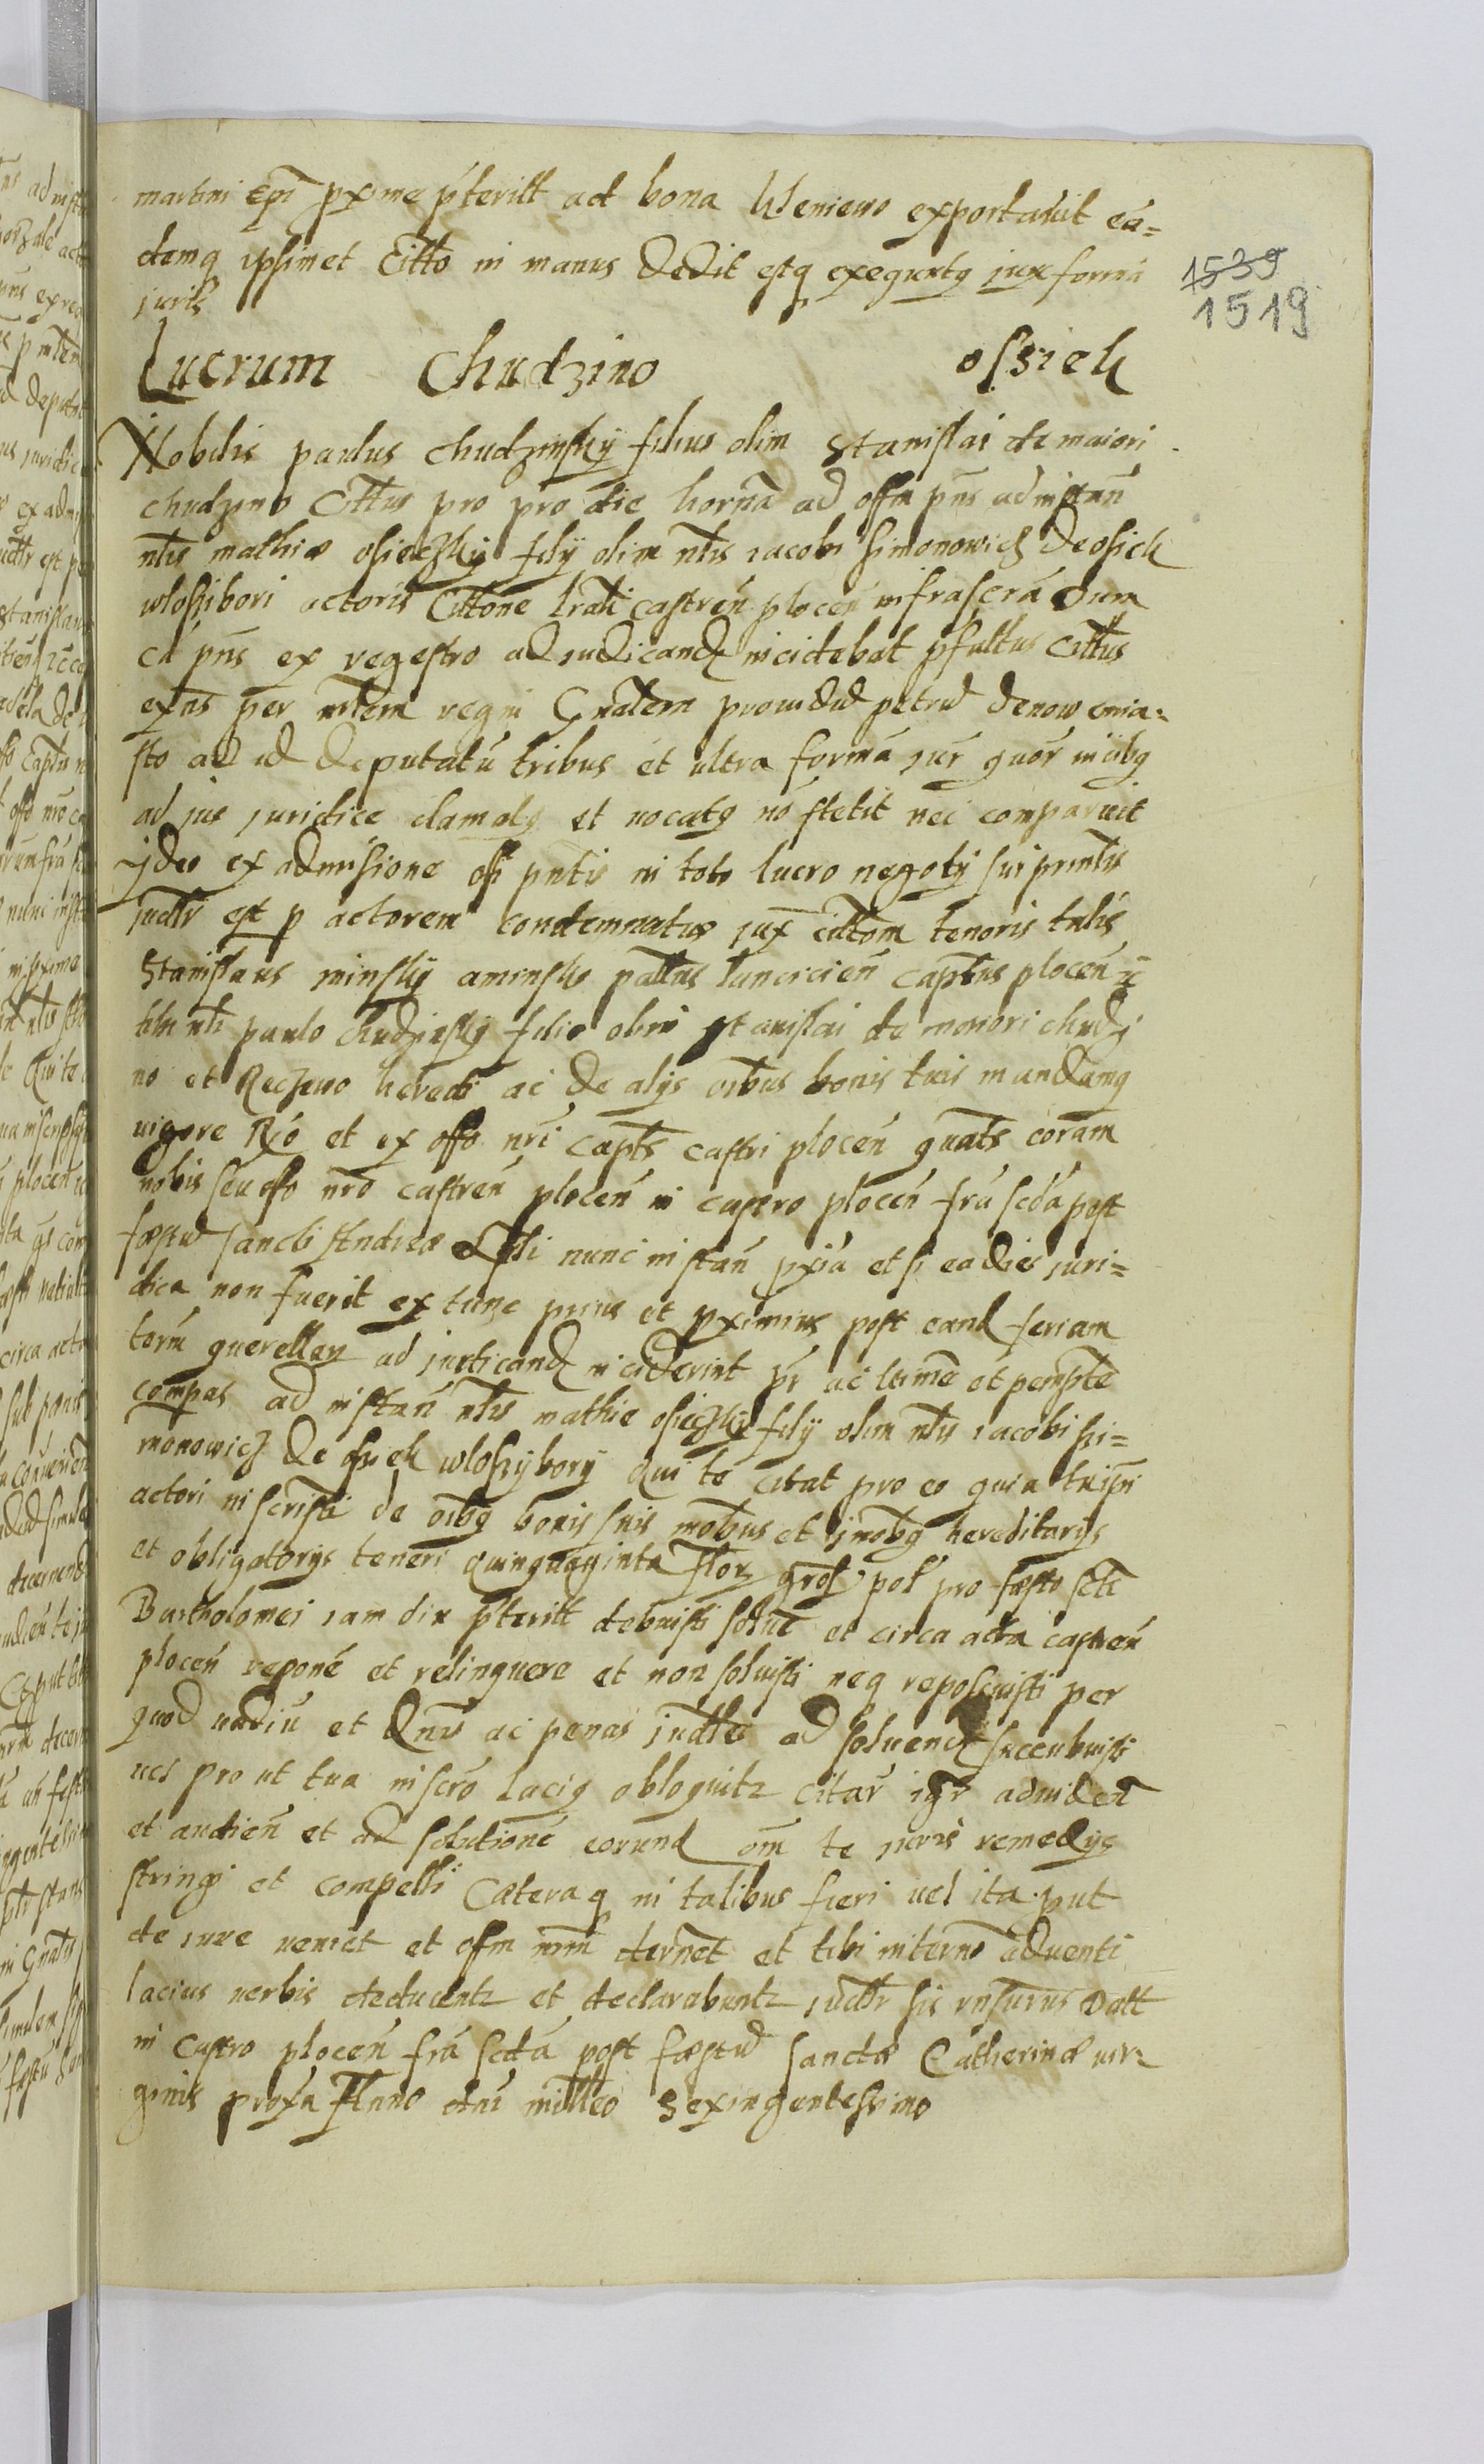 martini Epi pxime pterilt ad bona Weniewo exportavit eā=
demq ipsimet Citto in manus Dedit estq exequutq jux formā
juris
1539
1519
Lucrum Chudzino ossiek
Nobilis paulus chudzinskÿ filius olim Stanislai de maiori
chudzino Cittus pro pro die hornā ad offm pns ad instan̄
nlis mathiæ osieczkÿ filÿ olim nlis iacobi simonowicz de osiek
wlossibori actoris Cittone lrali castren̄ plocen̄ infrascrā dum
cā pns ex regestro ad iudicand incidebat pfattus Cittus
exns per mlem regni Gnalem providū petrū Denowemia=
sto ad id deputatū tribus et ultra formā jur quor in cibq
ad jus juridice clamatq et vocatq nō stetit nec comparuit
jdeo ex admisione offi pntis in toto lucro negotÿ sui prmlis
judlr est p actorem condemnatus jux cittom tenoris talis
Stanislaus minskÿ aminsko pallnus lancicien̄ captneus plocen̄ ꝛc
tibi nli paulo chudzinskÿ filio olim stanislai de maiori chudzi
no et Reczeno heredi ac de alÿs oibus bonis tuis mandamq
vigore Rio et ex offo nri capts castri plocen̄ quats coram
nobis seu offo nro castren̄ plocen̄ in castro plocen̄ frā scdā post
fæstū sancti Andreæ Apli nunc instan̄ pxiā et si ea dies juri=
dica non fuerit ex tunc prius et pximius post eand feriam
torm querellar ad judicand inciderint pr ac ltime et pempte
compas ad instan̄ nlis mathie osieczkÿ filÿ olim nlis iacobi si=
monowicz de osiek wlossÿborÿ qui te citat pro eo quia tu ipsi
actori inscristi de oibq bonis suis mobus et jmobq hereditarÿs
et obligatorÿs teneri quinquaginta flor gros pol pro fæsto scti
Bartholomei iam diu pterilt debuisti solue et circa acta castren̄
plocen̄ repone et relinquere et non soluisti neq reposuisti per
quod vadiū et Dnis ac penas judles ad soluend succubuisti
ues pro ut tua inscro laciq obloquitr citar igr ad viden̄
et audien̄ et ad solutione eorund om te juris remedÿs
stringi et compelli Cæteraq in talibus fieri uel ita put
de iure veniet et offm nrm decrnet et tibi in termo adventi
lacius verbis deducentr et declarabuntr judlr sis rnsurus Datt
in castro plocen̄ frā scdā post fæstū sanctæ Catherinæ vir=
ginis proxa Anno dni milleo Sexingentessimo